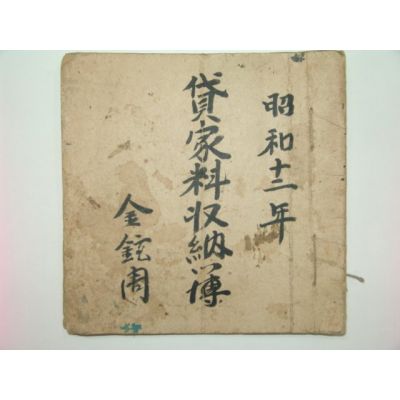 昭和十二年
貸家料収納簿
金 周